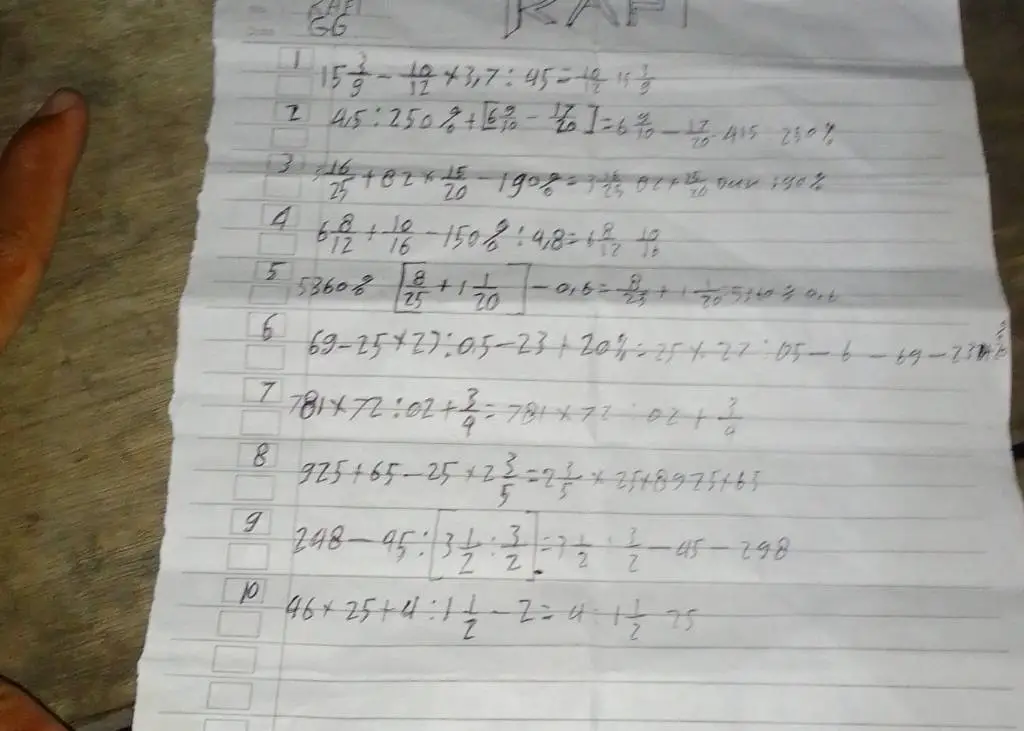 RAFI
RAFI
6G
1 15 3/9 - 10/12 × 3,7 : 45 = 10/12 15 3/9
2 4,5 : 250% + [6 9/10 - 17/20] = 6 9/10 - 17/20 - 415 250%
3 3 16/25 + 82 × 15/20 - 190% = 3 16/25 82 × 15/20 190%
4 6 8/12 + 10/16 - 150% : 4,8 = 6 8/12 10/16
5 5360% [8/25 + 1 1/20] - 0,6 = 8/25 + 1 1/20 5360% 0,6
6 69 - 25 × 27 : 0,5 - 23 + 20% = 25 × 27 : 05 - 6 - 69 - 23
7 781 × 72 : 02 + 3/4 = 781 × 72 : 02 + 3/4
8 925 + 65 - 25 × 2 3/5 = 2 3/5 × 25 + 8925 + 65
9 248 - 45 : [3 1/2 : 3/2] = 3 1/2 : 3/2 - 45 - 298
10 46 × 25 + 4 : 1 1/2 - 2 = 4 : 1 1/2 25